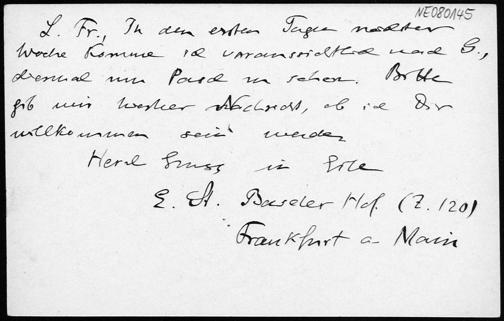 NE080145
L. Fr., In den ersten Tagen nächster
Woche komme ich voraussichtlich nach G.,
diesmal um Pasch zu sehen. Bitte
gib mir vorher Nachricht, ob ich Dir
willkommen sein werde
Herzl Gruss in Eile
E. St. Basler Hof. (Z. 120)
Frankfurt a Main